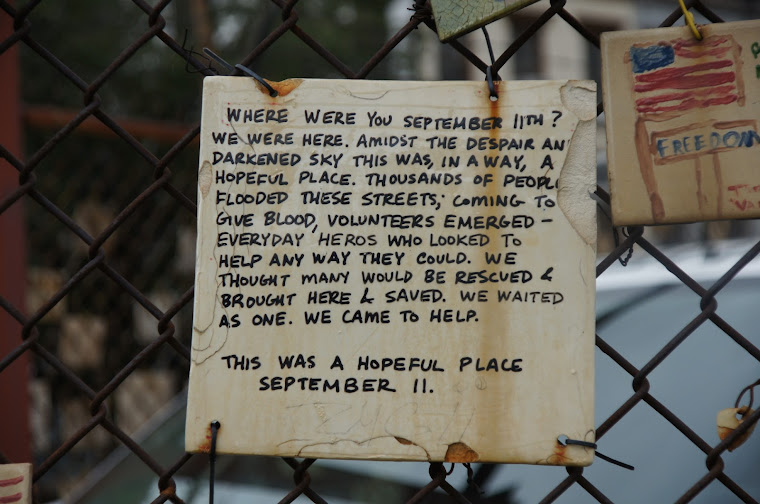 WHERE WERE YOU SEPTEMBER 11TH?
WE WERE HERE. AMIDST THE DESPAIR AN
DARKENED SKY THIS WAS, IN A WAY, A
HOPEFUL PLACE. THOUSANDS OF PEOPL
FLOODED THESE STREETS, COMING TO
GIVE BLOOD, VOLUNTEERS EMERGED –
EVERYDAY HEROS WHO LOOKED TO
HELP ANY WAY THEY COULD. WE
THOUGHT MANY WOULD BE RESCUED &
BROUGHT HERE & SAVED. WE WAITED
AS ONE. WE CAME TO HELP.
THIS WAS A HOPEFUL PLACE
SEPTEMBER 11.
FREEDOM